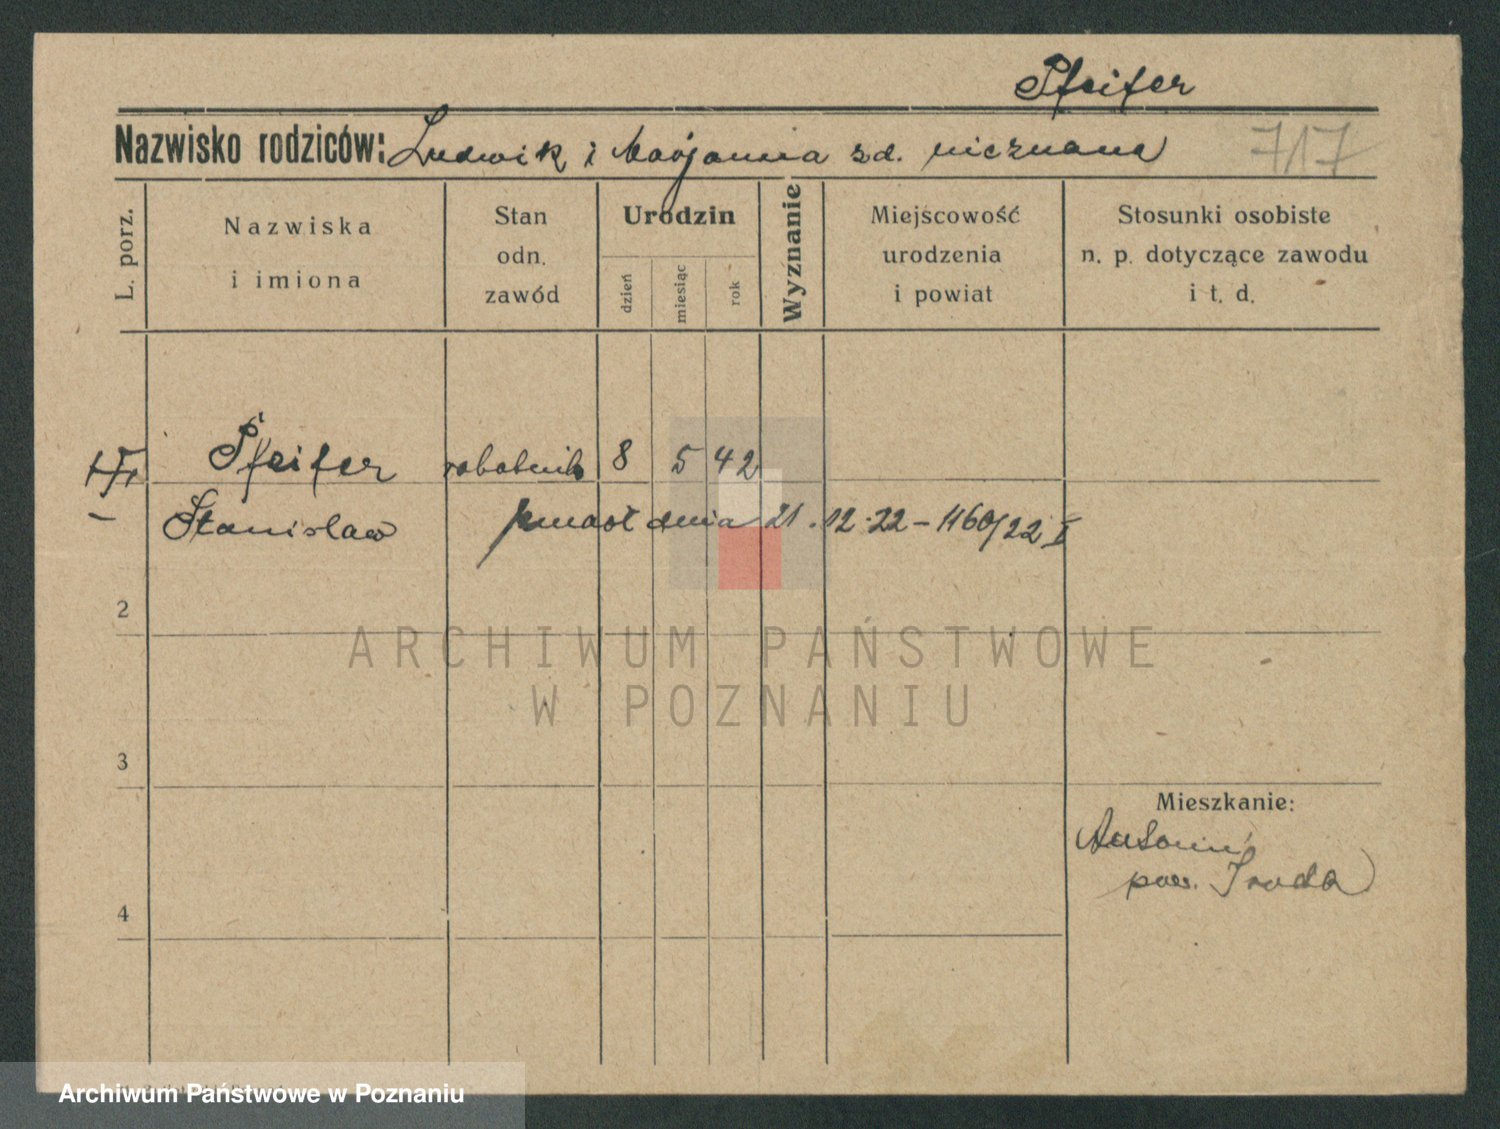 Pfeifer
Nazwisko rodziców: Ludwik i Marjanna zd. nieznana 717
L. porz.
Nazwiska
i imiona
Stan
odn.
zawód
Urodzin
dzień
miesiąc
rok
Wyznanie
Miejscowość
urodzenia
i powiat
Stosunki osobiste
n. p. dotyczące zawodu
i t. d.
Pfeifer robotnik 8 5 42
Stanisław zmarł dnia 21.12.22 – 1160/22 I
2
ARCHIWUM PAŃSTWOWE
W POZNANIU
3
Mieszkanie:
Antonin,
pow. Środa
4
Archiwum Państwowe w Poznaniu